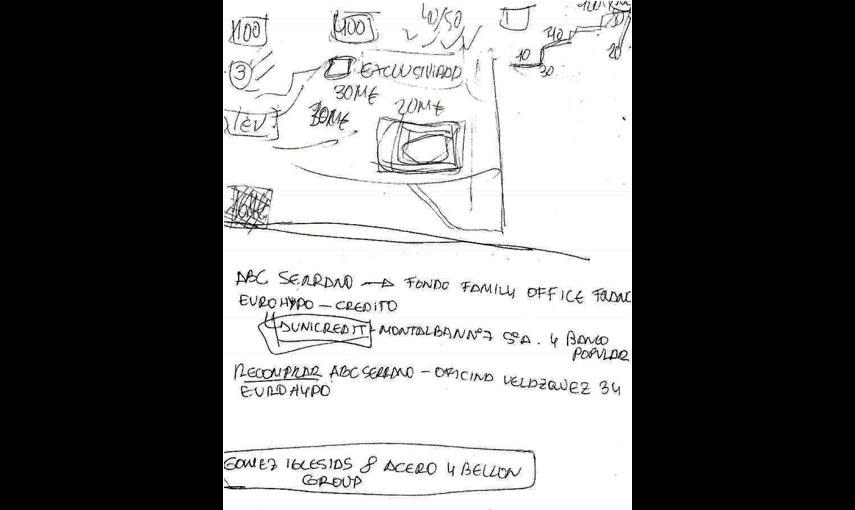 100
100
40/50
1
3
EXCLUSIVIDAD
40
10
30
20
30M€
30M€
20M€
ABC SERRANO → FONDO FAMILY OFFICE
EUROHYPO - CREDITO
AUNICREDIT - MONTALBAN Nº7 5ºA. Y BANCO
POPULAR
RECOMPRAR ABC SERRANO - OFICINA VELAZQUEZ 34
EUROHYPO
GOMEZ IGLESIAS & ACERO Y BELLON
GROUP